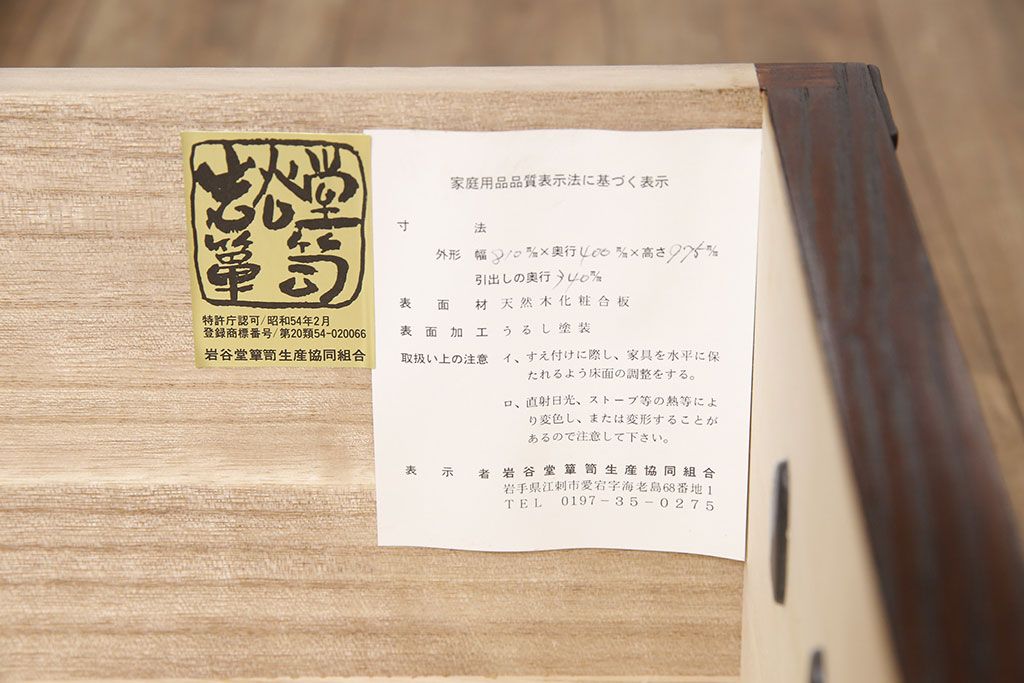 岩谷堂
簞笥
特許庁認可/昭和54年2月
登録商標番号/第20類54-020066
岩谷堂簞笥生産協同組合
家庭用品品質表示法に基づく表示
寸法
外形 幅 810㎜×奥行 400㎜×高さ 975㎜
引出しの奥行 340㎜
表面材 天然木化粧合板
表面加工 うるし塗装
取扱い上の注意 イ、すえ付けに際し、家具を水平に保
たれるよう床面の調整をする。
ロ、直射日光、ストーブ等の熱等によ
り変色し、または変形することが
あるので注意して下さい。
表示者 岩谷堂簞笥生産協同組合
岩手県江刺市愛宕字海老島68番地1
TEL 0197-35-0275